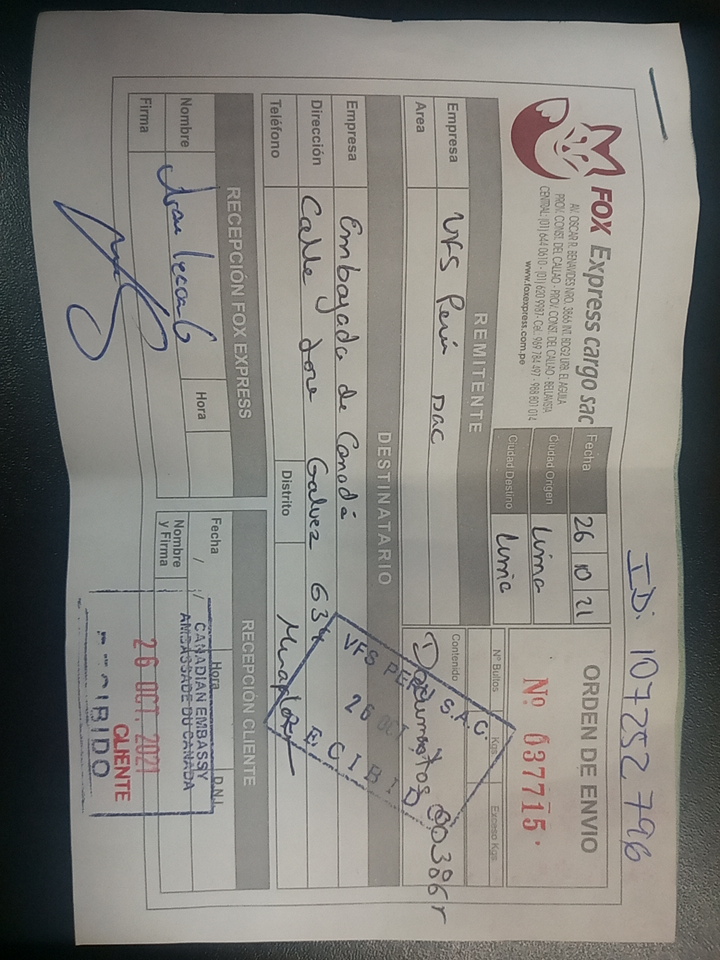 ID: 107252796
FOX Express cargo sac
AV. OSCAR R. BENAVIDES NRO. 3866 INT. BDG2 URB. EL AGUILA
PROV. CONST. DEL CALLAO - PROV. CONST. DEL CALLAO - BELLAVISTA
CENTRAL: (01) 644 0610 - (01) 620 9987 - Cel.: 969 784 497 - 988 801 014
www.foxexpress.com.pe
Fecha 26 10 21
Ciudad Origen Lima
Ciudad Destino Lima
ORDEN DE ENVIO
Nº 037715
REMITENTE
Nº Bultos Kgs Exceso Kgs.
Empresa VFS Perú SAC
Area
Contenido
Documentos
VFS PERU S.A.C.
26 OCT
RECIBID
DESTINATARIO
Empresa Embajada de Canadá
Dirección Calle Jose Galvez 634
Teléfono
Distrito Miraflores
RECEPCIÓN FOX EXPRESS
Nombre
Hora
Firma
RECEPCIÓN CLIENTE
Fecha / / Hora D.N.I.
Nombre y Firma
CANADIAN EMBASSY
AMBASSADE DU CANADA
26 OCT. 2021
CLIENTE
RECIBIDO